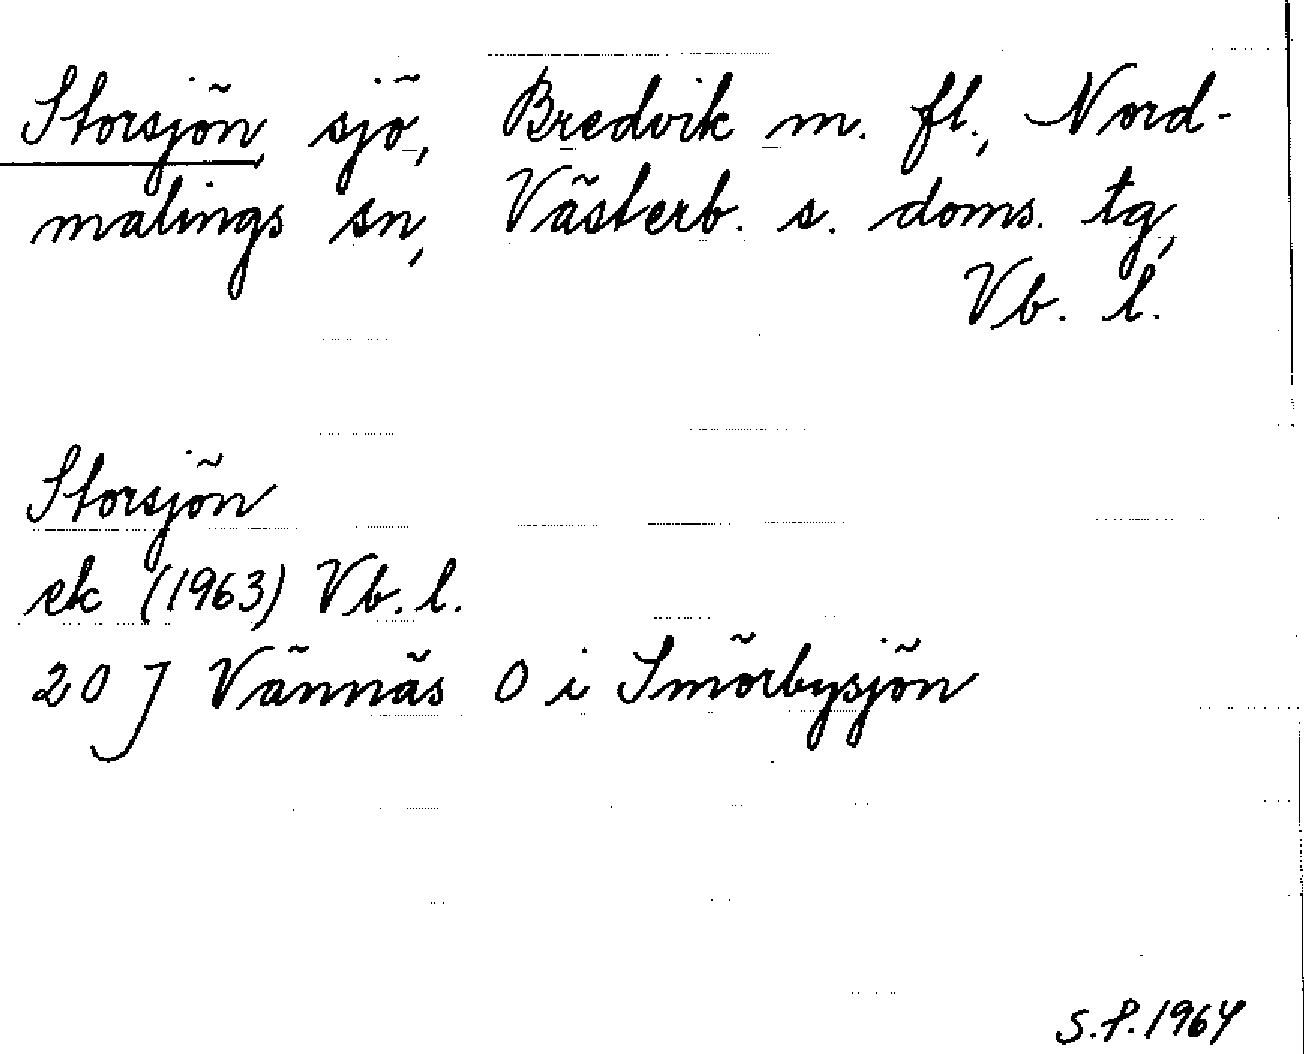 Storsjön, sjö, Bredvik m. fl., Nord-
malings sn, Västerb. s. doms. tg,
Vb. l.
Storsjön
ek (1963) Vb. l.
20 J Vännäs O i Smörbysjön
S.P. 1964